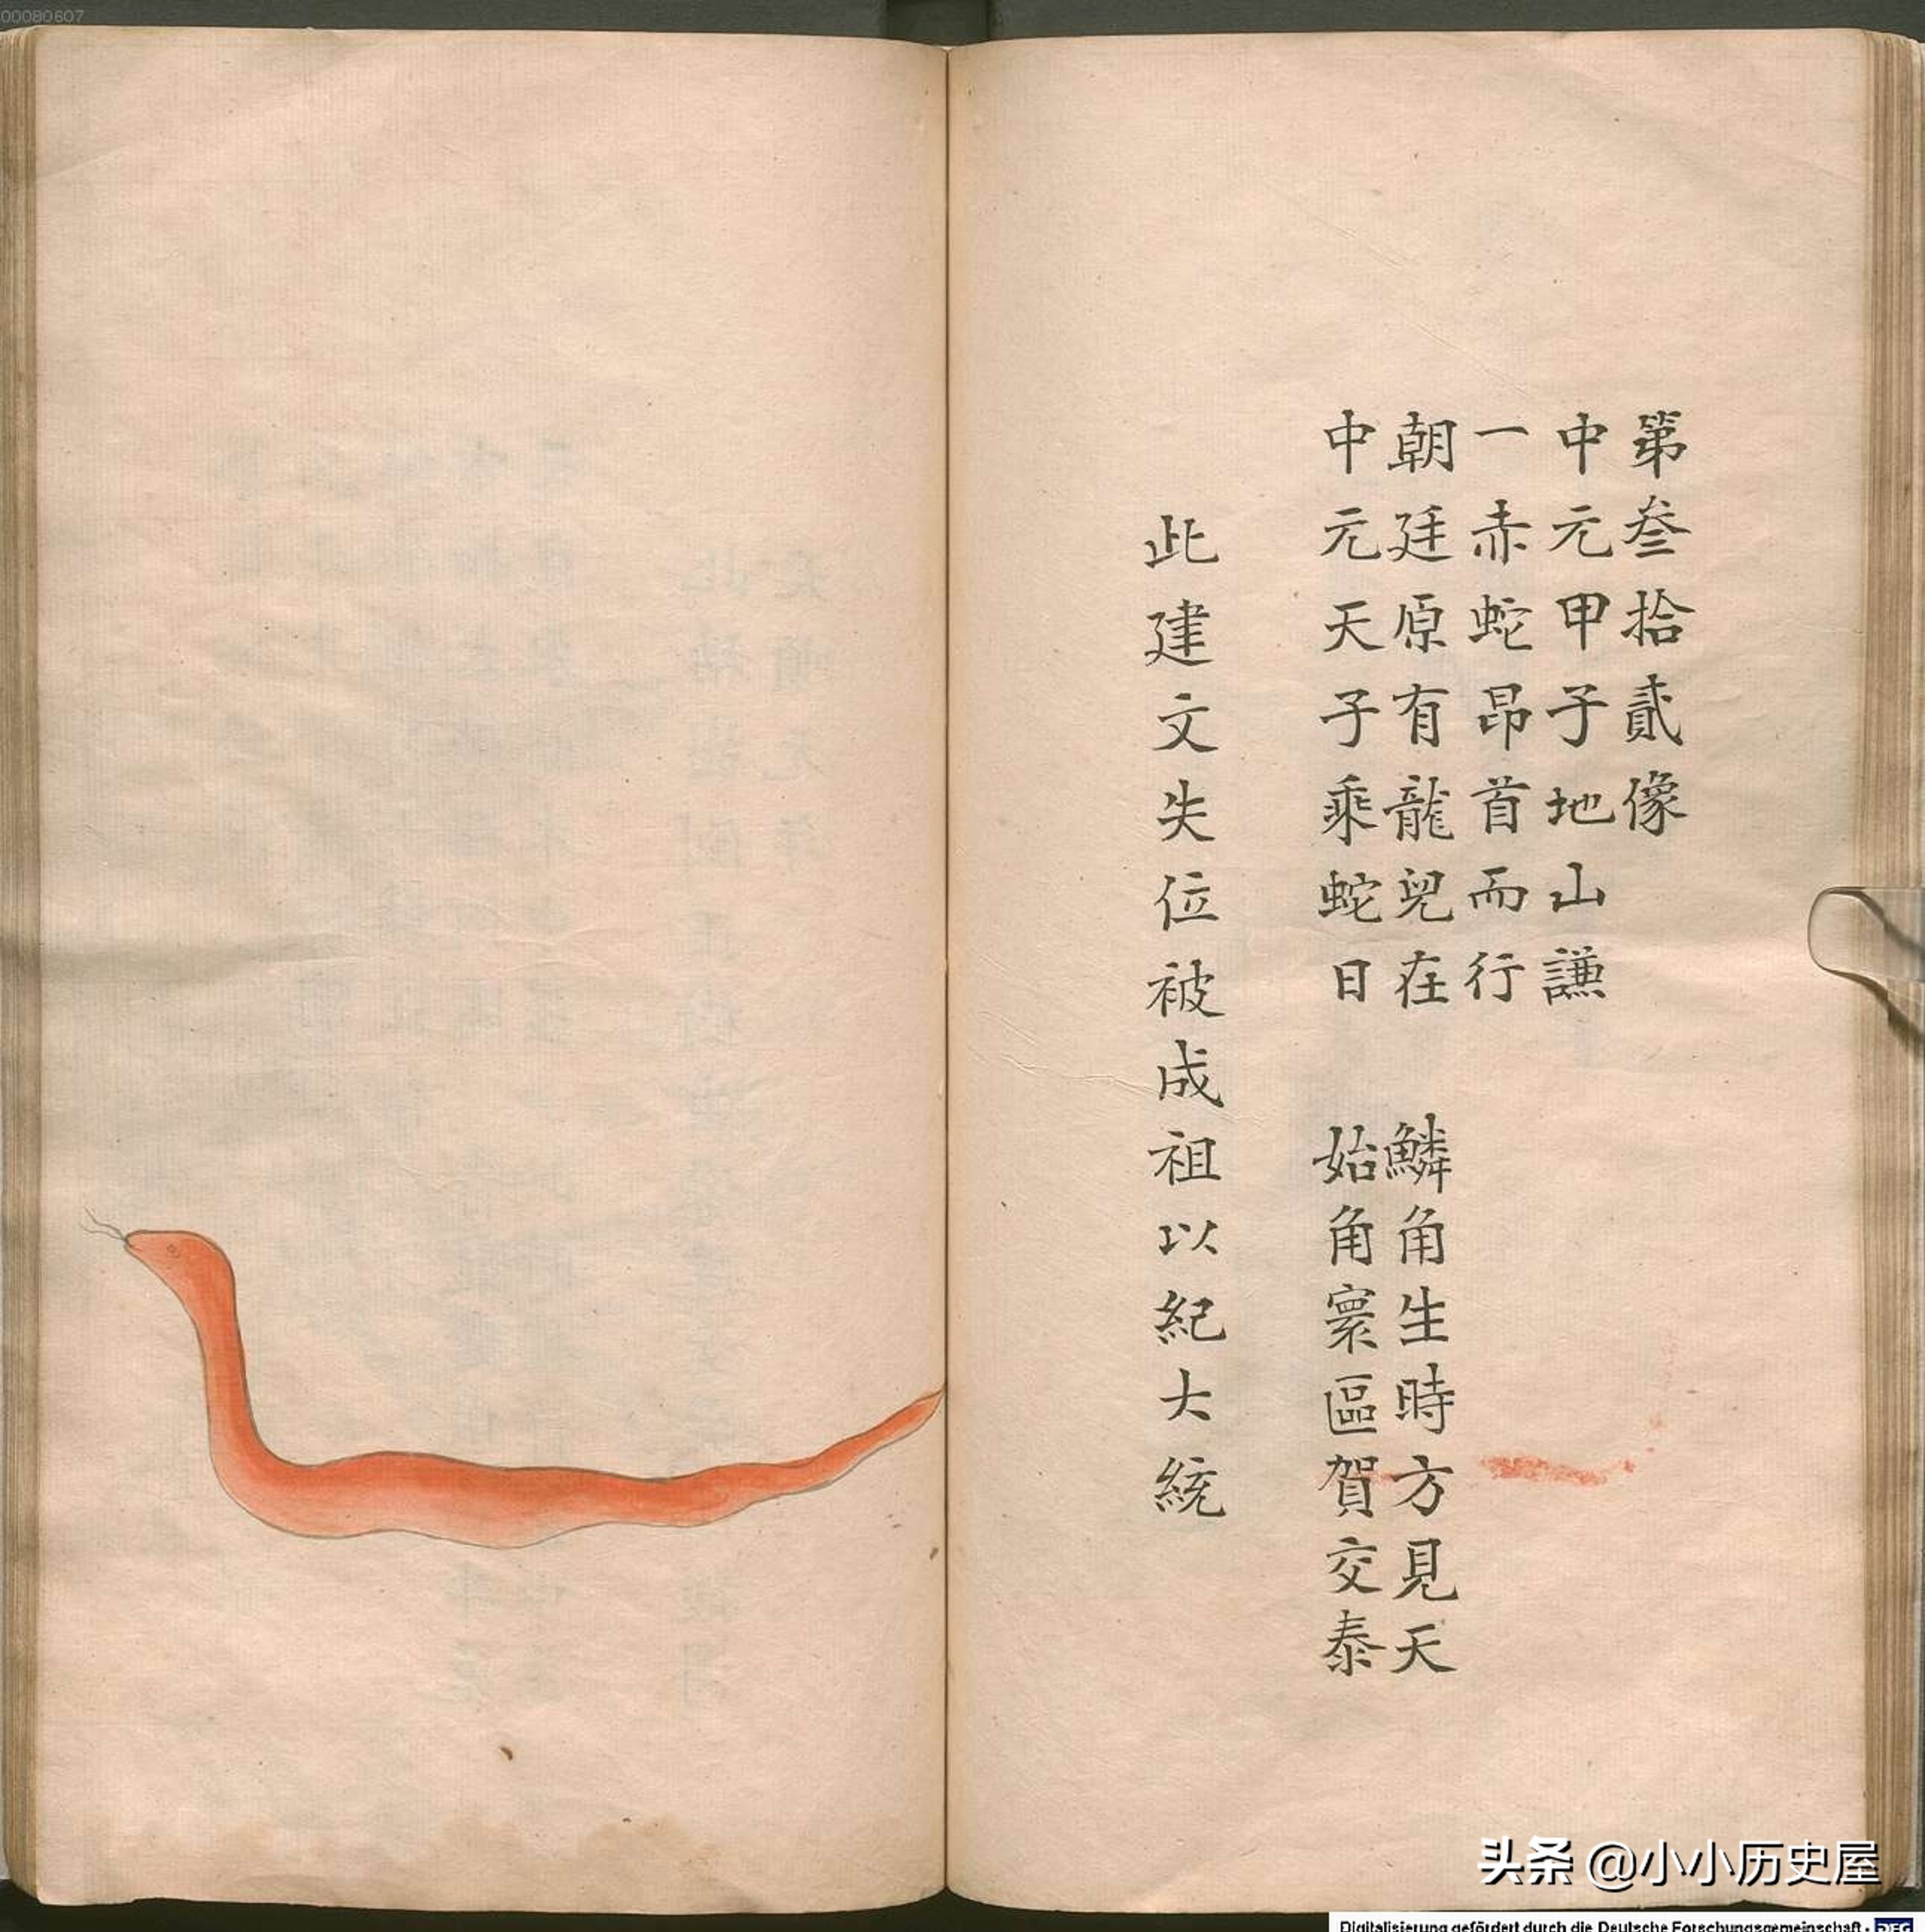 00080607
第叁拾貳像
中元甲子地山謙
一赤蛇昂首而行
朝廷原有龍兒在 鱗角生時方見天
中元天子乘蛇日 始角寰區賀交泰
此建文失位被成祖以紀大統
头条 @小小历史屋
Digitalisierung gefördert durch die Deutsche Forschungsgemeinschaft - DFG